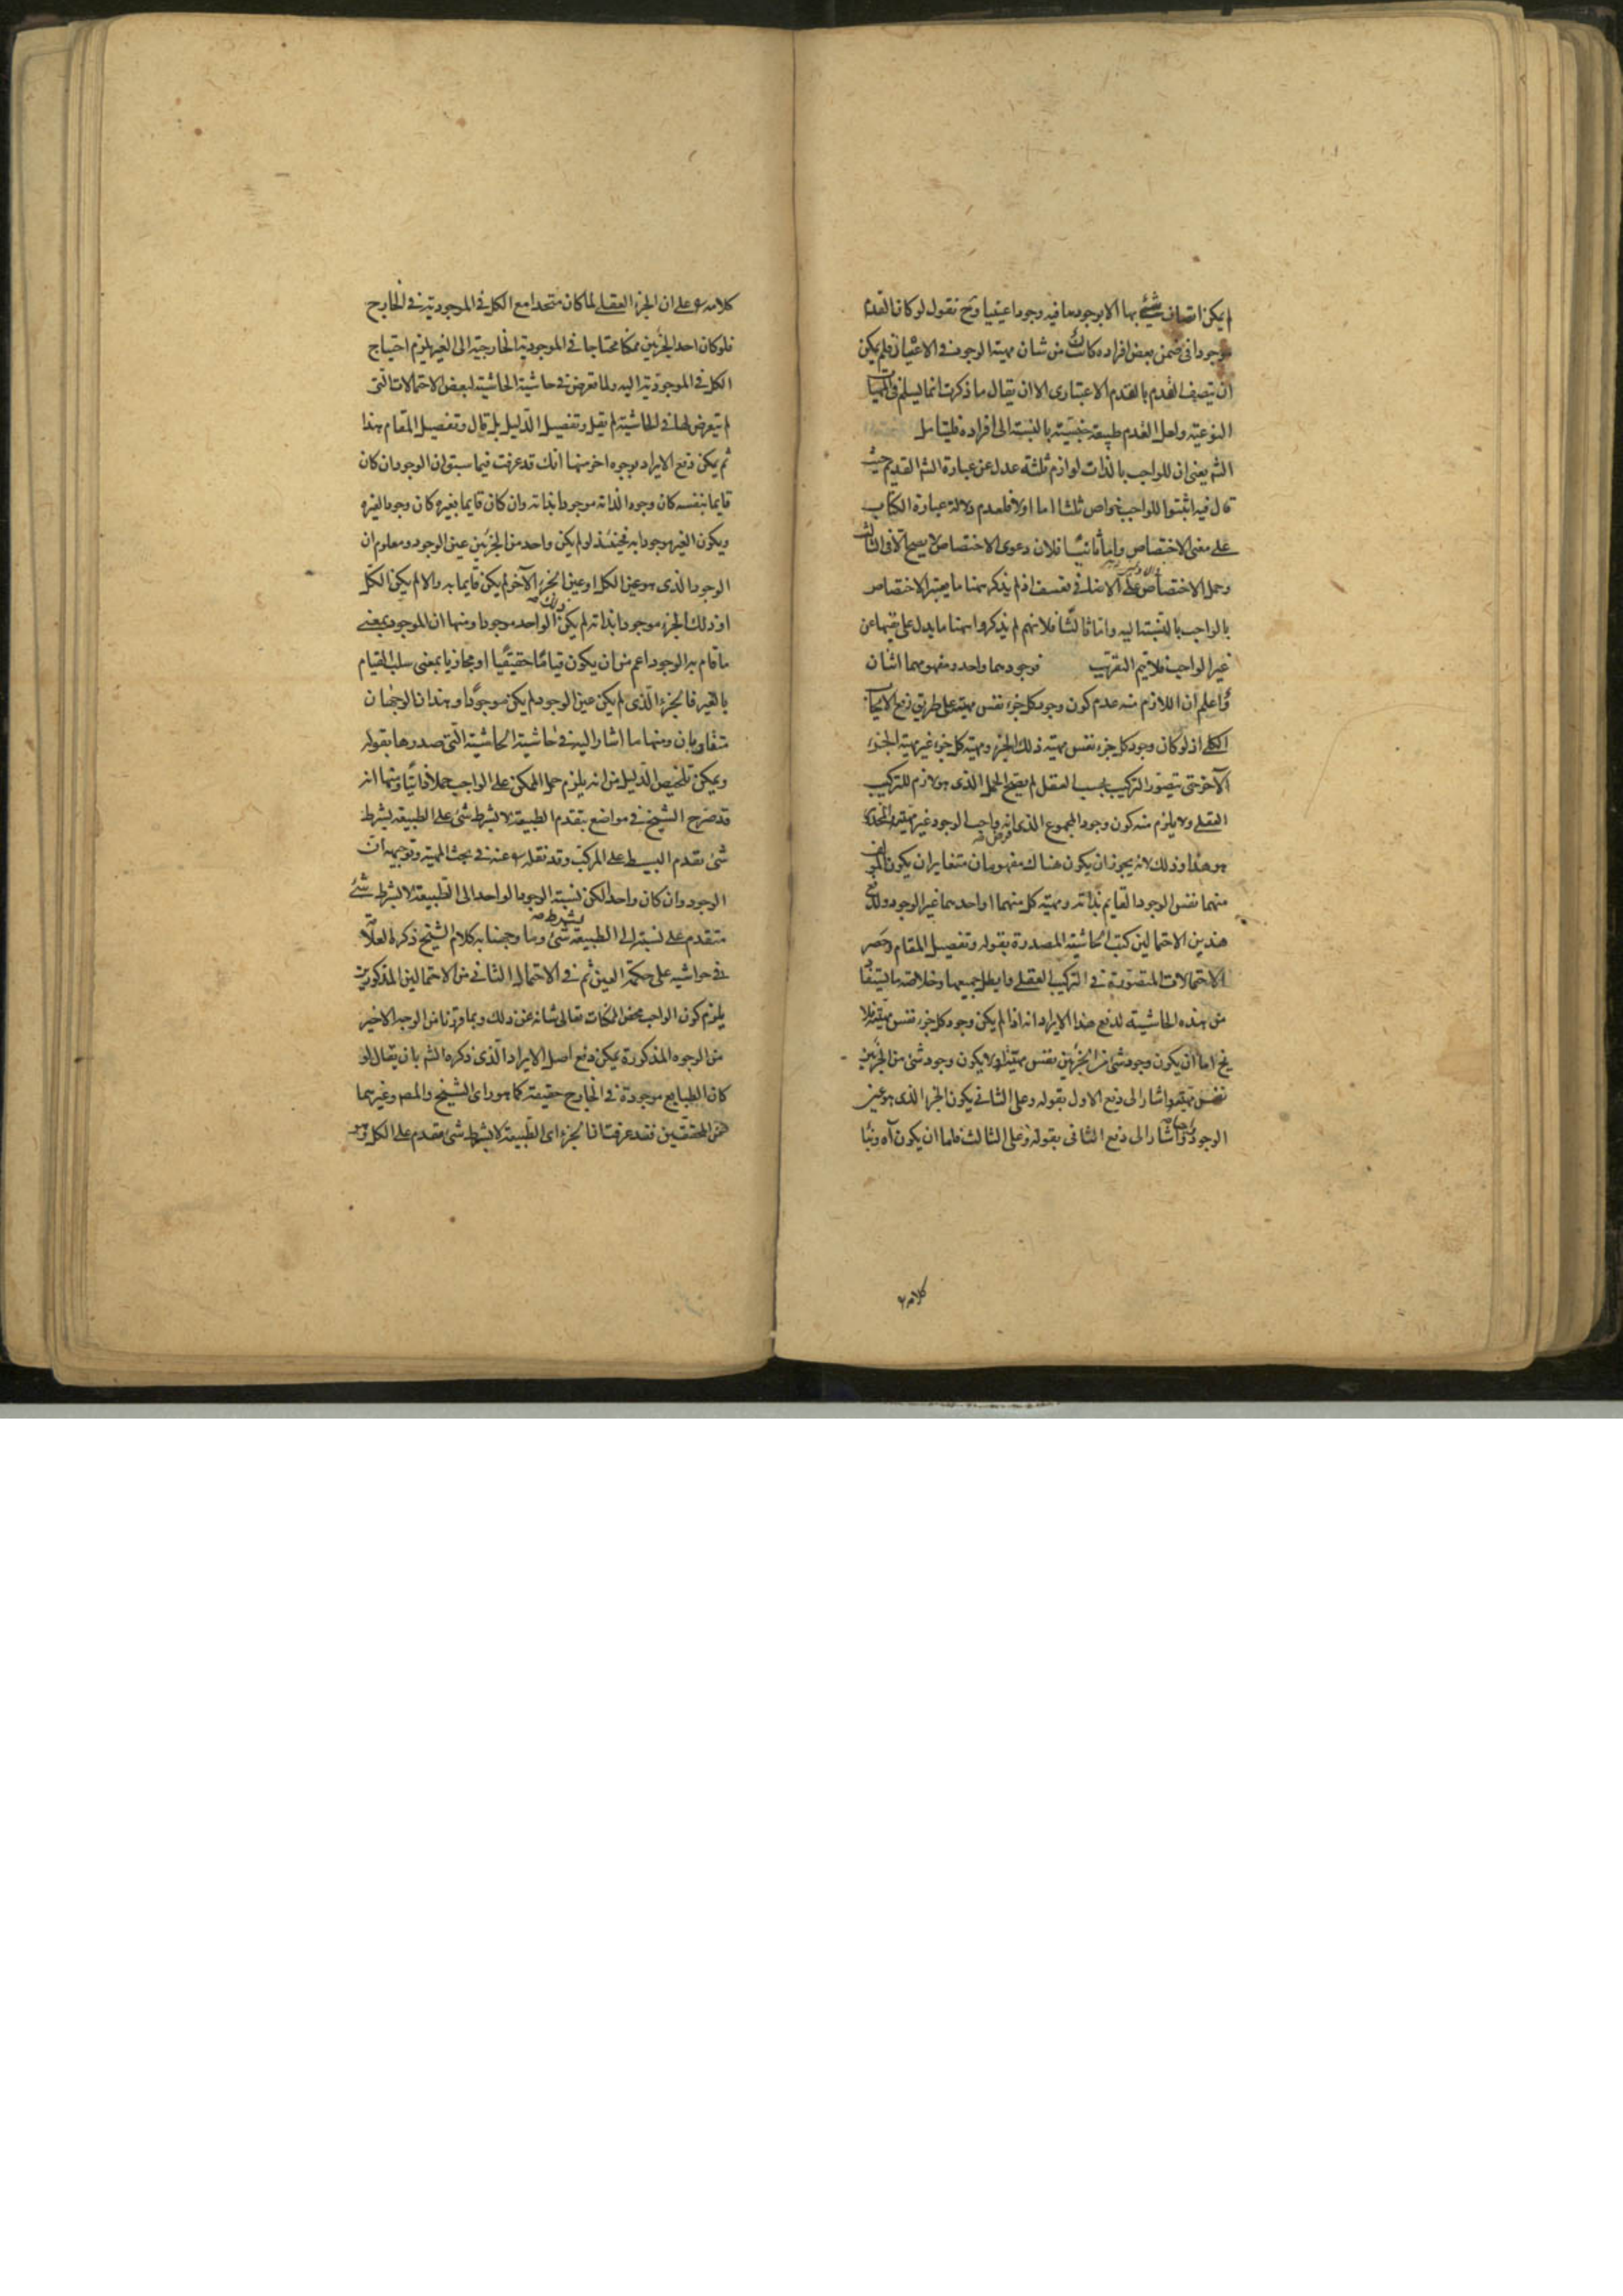 لم يكن اتصاف شيء بها الا بوجودها فيه وجودا عينيا وح نقول لو كان القدم
موجودا في ضمن بعض افراده كانت من شان مهية الوجود في الاعيان فلم يكن
ان يتصف القدم بالقدم الاعتبارى الا ان يقال ما ذكرت انما يسلم في المهيات
النوعية ولعل القدم طبيعة جنسية بالنسبة الى افراده فليتامل
الشم يعنى ان للواجب بالذات لوازم ثلثة عدل عن عبارة الشم القديم حيث
قال فيه اثبتوا للواجب خواص ثلثا اما اولا فلعدم دلالة عبارة الكتاب
على معنى الاختصاص واما ثانيا فلان دعوى الاختصاص لا يصح الا في الثالث
وحمل الاختصاص على الاضافى تعسف اذ لم يذكر ههنا ما يعتبر الاختصاص
بالواجب بالنسبة اليه واما ثالثا فلانهم لم يذكروا ههنا ما يدل على نفيها عن
غير الواجب فلا يتم التقريب فوجودهما واحد ومفهومهما اثنان
واعلم ان اللازم منه عدم كون وجود كل جزء نفس مهيته على طريق رفع الايجاب
الكلى اذ لو كان وجود كل جزء نفس مهية ذلك الجزء ومهية كل جزء غير مهية الجزء
الآخر حتى يتصور التركيب بحسب العقل لم يصح الحمل الذى هو لازم للتركيب
العقلى ولا يلزم منه كون وجود المجموع الذى فرض انه واجب الوجود غير مهيته المحذور
هو هذا وذلك لانه يجوز ان يكون هناك مفهومان متغايران يكون المؤلف
منهما نفس الوجود القايم بذاته ومهية كل منهما او احدهما غير الوجود ولدفع
هذين الاحتمالين كتب الحاشية المصدرة بقوله وتفصيل المقام وحصر
الاحتمالات المتصورة في التركيب العقلى وابطل جميعها وخلاصة ما يستفاد
من هذه الحاشية لدفع هذا الايراد انه اذا لم يكن وجود كل جزء نفس مهيته فلا
يخ اما ان يكون وجود شئ من الجزئين نفس مهيته او لا يكون وجود شئ من الجزئين
نفس مهيته واشار الى دفع الاول بقوله وعلى الثانى يكون الجزء الذى هو عين
الوجود واشار الى دفع الثانى بقوله وعلى الثالث فاما ان يكون آه وبنا
كلامه
كلامه على ان الجزء العقلى لما كان متحدا مع الكل في الموجودية في الخارج
فلو كان احد الجزئين ممكنا محتاجا في الموجودية الخارجية الى الغير يلزم احتياج
الكل في الموجودية اليه ولما تعرض في حاشية الحاشية لبعض الاحتمالات التى
لم يتعرض لها في الحاشية لم يقل وتفصيل الدليل بل قال وتفصيل المقام هذا
ثم يمكن دفع الايراد بوجوه اخر منها انك قد عرفت فيما سبق ان الوجود ان كان
قايما بنفسه كان وجودا لذاته موجودا بذاته وان كان قايما بغيره كان وجودا لغيره
ويكون الغير موجودا به فحينئذ لو لم يكن واحد من الجزئين عين الوجود ومعلوم ان
الوجود الذى هو عين الكل او عين الجزء الآخر لم يكن قايما به والا لم يكن الكل
او ذلك الجزء موجودا بذاته لم يكن ذلك الواحد موجودا ومنها ان الموجود بمعنى
ما قام به الوجود اعم من ان يكون قياما حقيقيا او مجازيا بمعنى سلب القيام
بالغير فالجزء الذى لم يكن عين الوجود لم يكن موجودا وهذان الوجهان
متقاربان ومنها ما اشار اليه في حاشية الحاشية التى صدرها بقوله
ويمكن تلخيص الدليل من انه يلزم حمل الممكن على الواجب حملا ذاتيا ومنها انه
قد صرح الشيخ في مواضع بتقدم الطبيعة لا بشرط شئ على الطبيعة بشرط
شئ تقدم البسيط على المركب وقد نقله عنه في بحث المهية وتوجيهه ان
الوجود وان كان واحدا لكن نسبة الوجود الواحد الى الطبيعة لا بشرط شئ
متقدم على نسبته الى الطبيعة بشرط شئ وما وجهنا به كلام الشيخ ذكره العلامة
في حواشيه على حكمة العين ثم في الاحتمال الثانى من الاحتمالين المذكورين
يلزم كون الواجب محض الممكنات تعالى شانه عن ذلك وبما قررنا من الوجه الاخير
من الوجوه المذكورة يمكن دفع اصل الايراد الذى ذكره الشم بان يقال لو
كان الطبايع موجودة في الخارج حقيقة كما هو راى الشيخ والمصم وغيرهما
من المحققين فقد عرفت ان الجزء اى الطبيعة لا بشرط شئ مقدم على الكل وهو